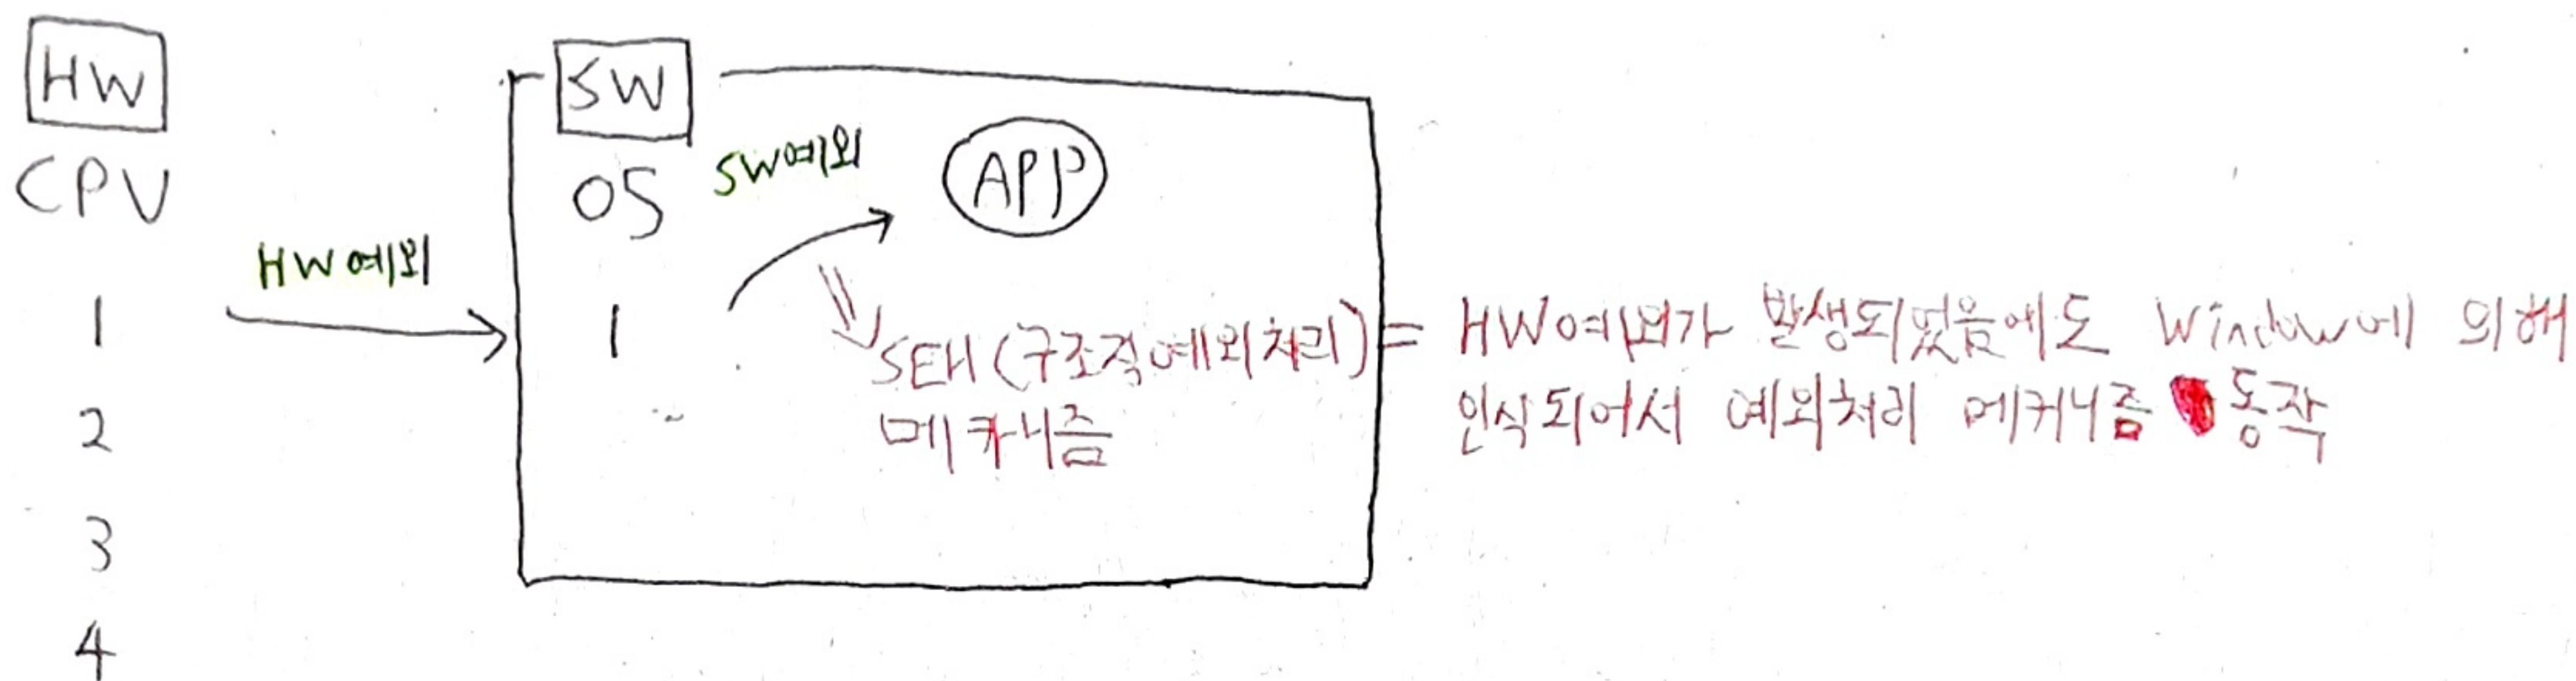 HW
CPU
HW예외
1
2
3
4
SW
OS
SW예외
APP
1
SEH(구조적예외처리)
메카니즘
= HW예외가 발생되었음에도 Window에 의해
인식되어서 예외처리 메커니즘 동작